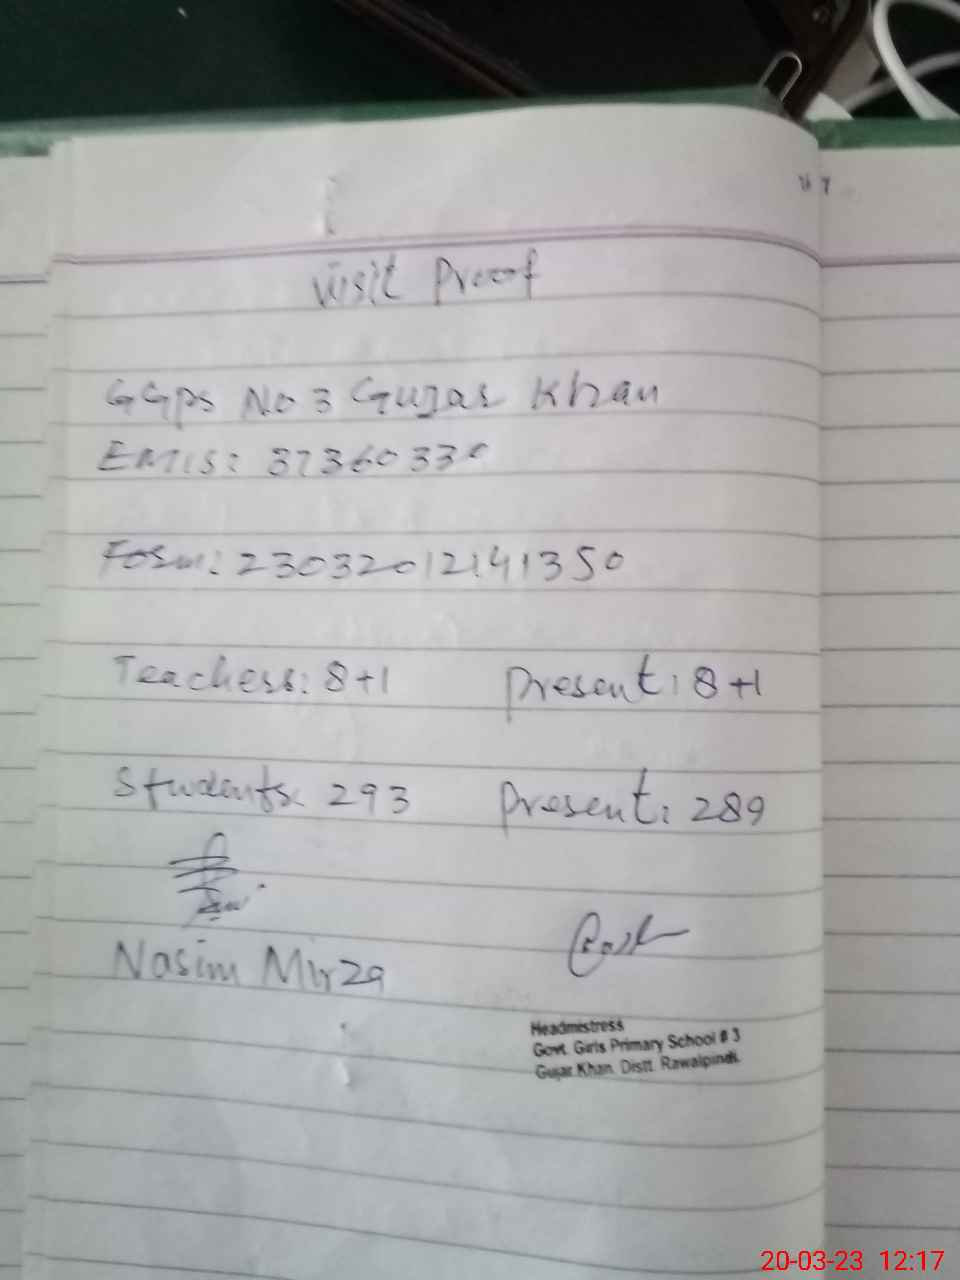 Visit Proof
GGPS No 3 Gujar Khan
EMIS: 37360330
Form: 23032012141350
Teachers: 8+1 Present: 8+1
Students: 293 Present: 289
Nasim Mirza
Headmistress
Govt. Girls Primary School # 3
Gujar Khan. Distt. Rawalpindi.
20-03-23 12:17